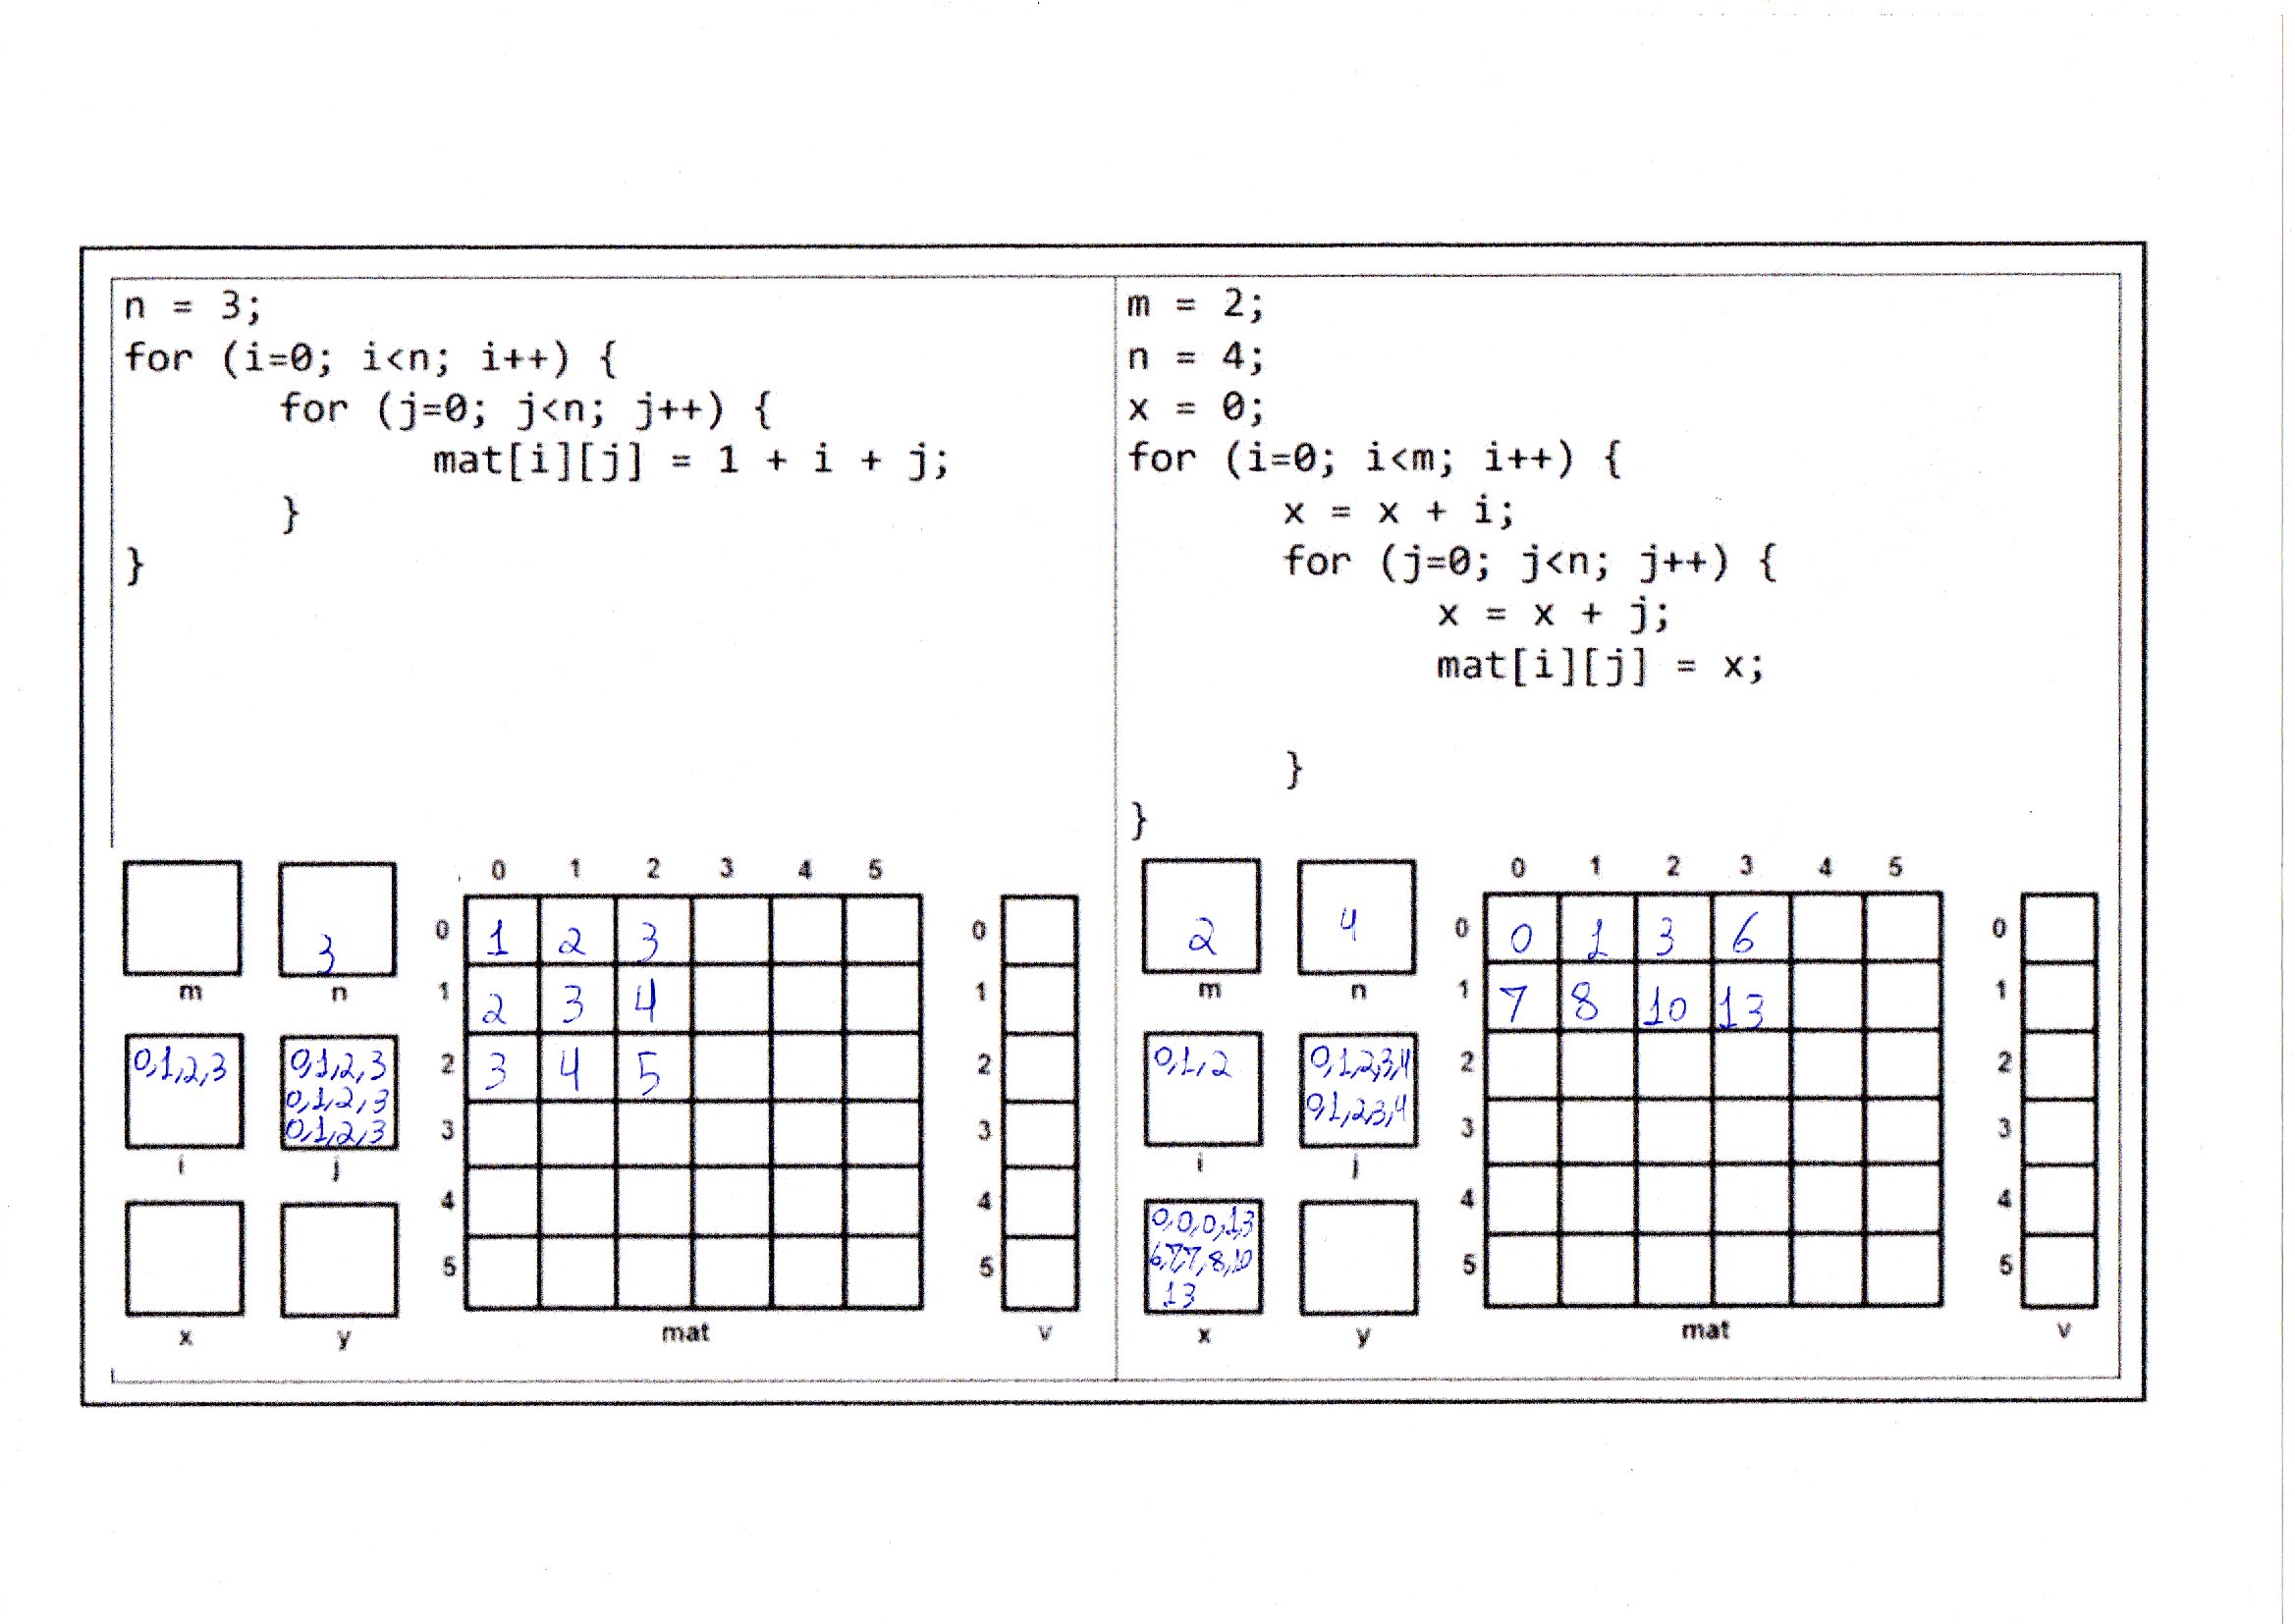 n = 3;
for (i=0; i<n; i++) {
for (j=0; j<n; j++) {
mat[i][j] = 1 + i + j;
}
}
0 1 2 3 4 5
0 1 2 3
1 2 3 4
2 3 4 5
3
4
5
mat
0
1
2
3
4
5
v
m
3
n
0,1,2,3
i
0,1,2,3
0,1,2,3
0,1,2,3
j
x
y
m = 2;
n = 4;
x = 0;
for (i=0; i<m; i++) {
x = x + i;
for (j=0; j<n; j++) {
x = x + j;
mat[i][j] = x;
}
}
2
m
4
n
0,1,2
i
0,1,2,3,4
0,1,2,3,4
j
0,0,0,1,3
6,7,7,8,10
13
x
y
0 1 2 3 4 5
0 0 1 3 6
1 7 8 10 13
2
3
4
5
mat
0
1
2
3
4
5
v